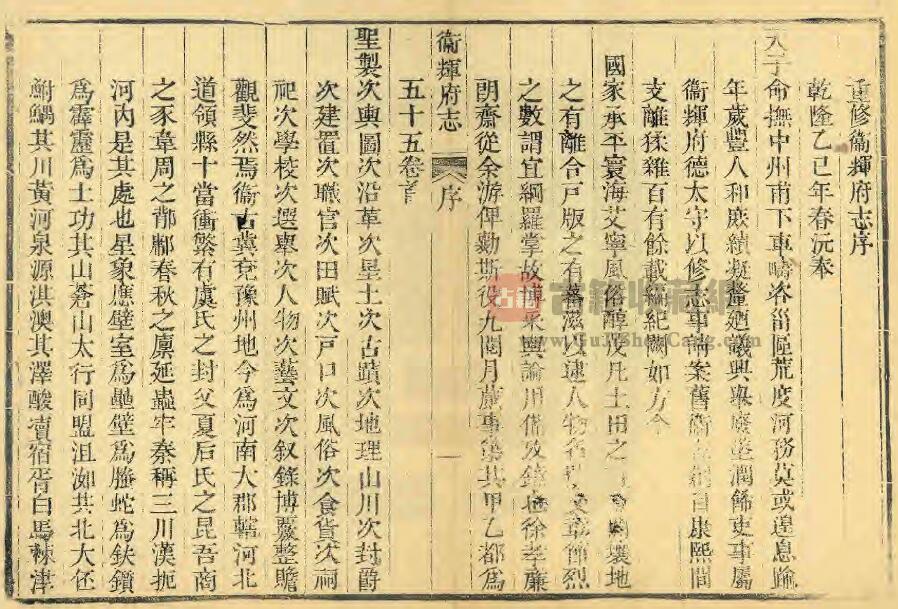 重修衞輝府志序
乾隆乙巳年春沅奉
天子命撫中州甫下車疇咨菑區荒度河務莫或遑息踰
年歲豐人和庶績凝釐廼議興舉廢墜潤飾吏事屬
衞輝府德太守以修志事請案舊衞志剏自康熙間
支離猱雜百有餘載綱紀闕如方今
國家承平寰海艾寧風俗醇茂凡土田之壤地
之有離合戸版之有蕃滋以逮人物名文章偉烈
之數謂宜網羅掌故博采輿論用備攷鏡也徐孝廉
朗齋從余游俾勷斯役九閱月蕆事彙其甲乙都爲
衞輝府志
序
一
五十五卷首
聖製次輿圖次沿革次星土次古蹟次地理山川次封爵
次建置次職官次田賦次戸口次風俗次食貨次祠
祀次學校次選舉次人物次藝文次叙錄博覈整贍
觀斐然焉衞古冀兗豫州地今爲河南大郡轄河北
道領縣十當衝繁有虞氏之封父夏后氏之昆吾商
之豕韋周之鄁鄘春秋之廩延蟲牢秦稱三川漢扼
河內是其處也星象應壁室爲壘壁爲螣蛇爲鈇鑕
爲霹靂爲土功其山蒼山太行同盟沮洳共北大伾
鮒鰅其川黃河泉源淇澳其澤酸棗宿胥白馬棘津
古籍
古籍收藏網
www.GuJiShouCang.com